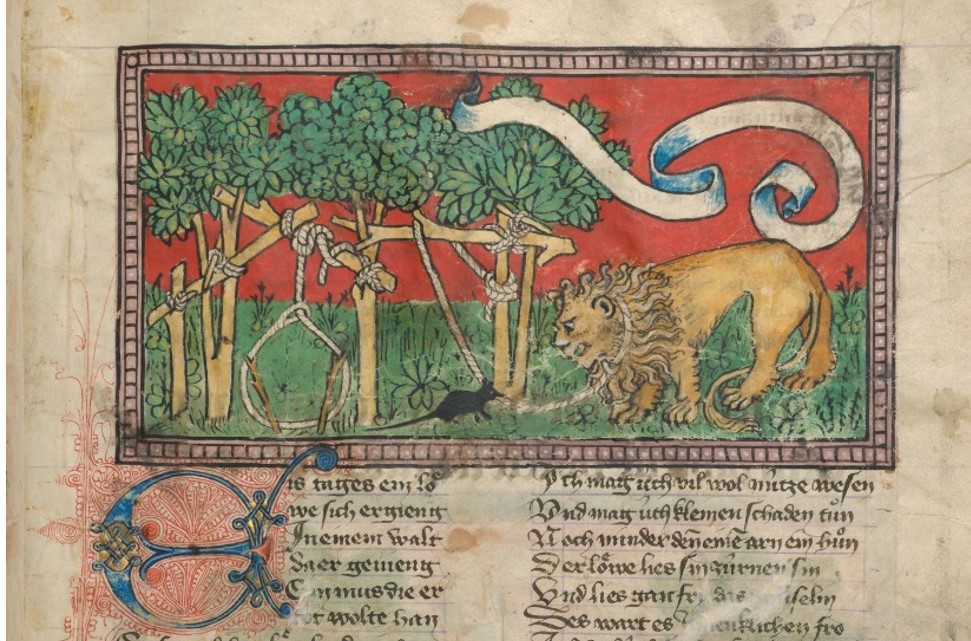 Eis tages ein lö
we sich ergieng
In einem walt
Da er gevieng
Ein mus die er
tot wolte han
Ich mag uch vil wol nütze wesen
Vnd mag uch kleinen schaden tůn
Noch minder den eīē arn ein hůn
Der löwe lies sin zürnen sin
Vnd lies gan fri das
Des wart es fro